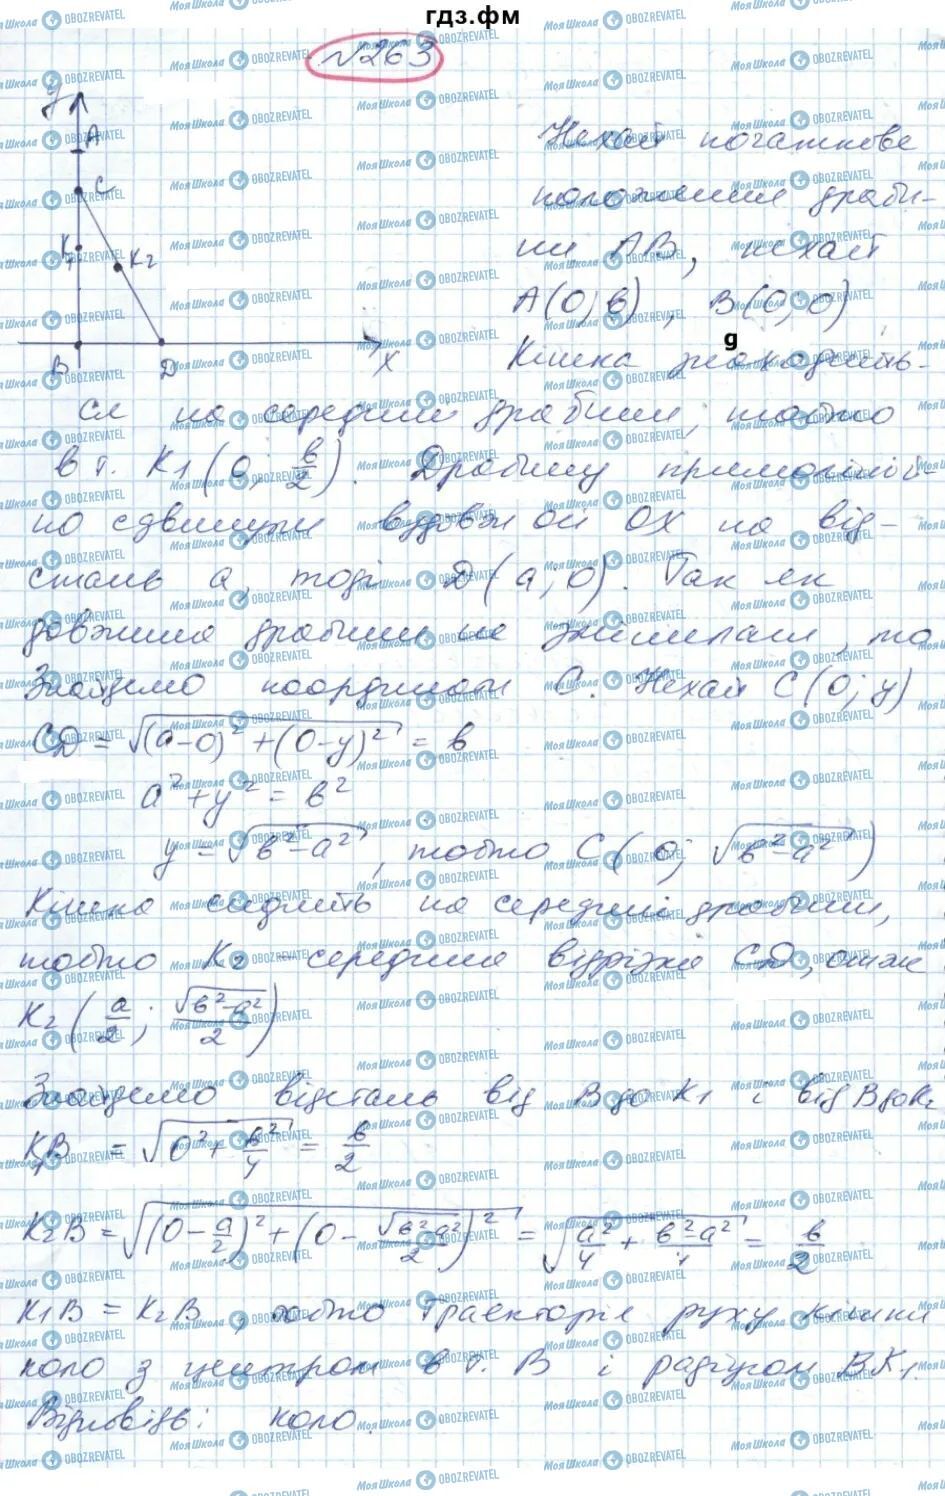 гдз.фм
№263
y
A
C
K1
K2
B
D
x
Нехай початкове
положення драби-
ни AB, нехай
A(0; в), B(0; 0)
g
Кішка знаходить-
ся на середині драбини, тобто
в т. K1(0; в/2). Драбину прямоліній-
но сдвинули вздовж осі OX на від-
стань a, тоді D(a; 0). Так як
довжина драбини не змінилась, то
Знайдемо координати C. Нехай C(0; y)
CD = √((a-0)² + (0-y)²) = в
a² + y² = в²
y = √(в²-a²), тобто C(0; √(в²-a²))
Кішка сидить на середині драбини,
тобто K2 - середина відрізка CD, отже
K2(a/2; √(в²-a²)/2)
Знайдемо відстань від B до K1 і від B до K2
K1B = √(0² + в²/4) = в/2
K2B = √((0 - a/2)² + (0 - √(в²-a²)/2)²) = √(a²/4 + (в²-a²)/4) = в/2
K1B = K2B, тобто траекторія руху кішки
коло з центром в т. B і радіусом BK1.
Відповідь: коло.
МояШкола OBOZREVATEL